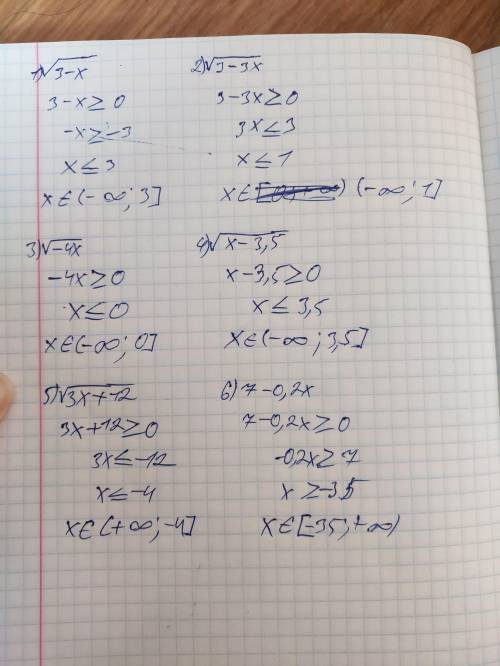 1) √3-x
3-x ≥ 0
-x ≥ -3
x ≤ 3
x∈(-∞; 3]
2) √3-3x
3-3x ≥ 0
3x ≤ 3
x ≤ 1
x∈ (-∞; 1]
3) √-4x
-4x ≥ 0
x ≤ 0
x∈(-∞; 0]
4) √x-3,5
x-3,5 ≥ 0
x ≤ 3,5
x∈(-∞; 3,5]
5) √3x+12
3x+12 ≥ 0
3x ≤ -12
x ≤ -4
x∈(+∞; -4]
6) 7-0,2x
7-0,2x ≥ 0
-0,2x ≥ 7
x ≥ -35
x∈[-35; +∞)